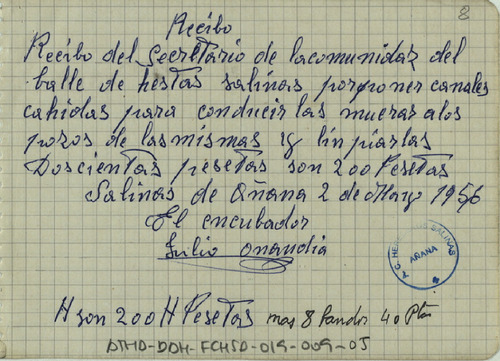 8
Recibo
Recibo del Secretario de lacomunidaz del
balle de hestas salinas porponer canales
cahidas para conducir las mueras alos
pozos de lasmismas y linpiarlas
Doscientas pesetas son 200 Pesetas
Salinas de Añana 2 de Mayo 1956
El encubador
Julio Onandia
A. C. SALINAS
AÑANA
H son 200 H Pesetas mas 8 40 Ptas
DTHD-DOH-FCHSD-019-009-05